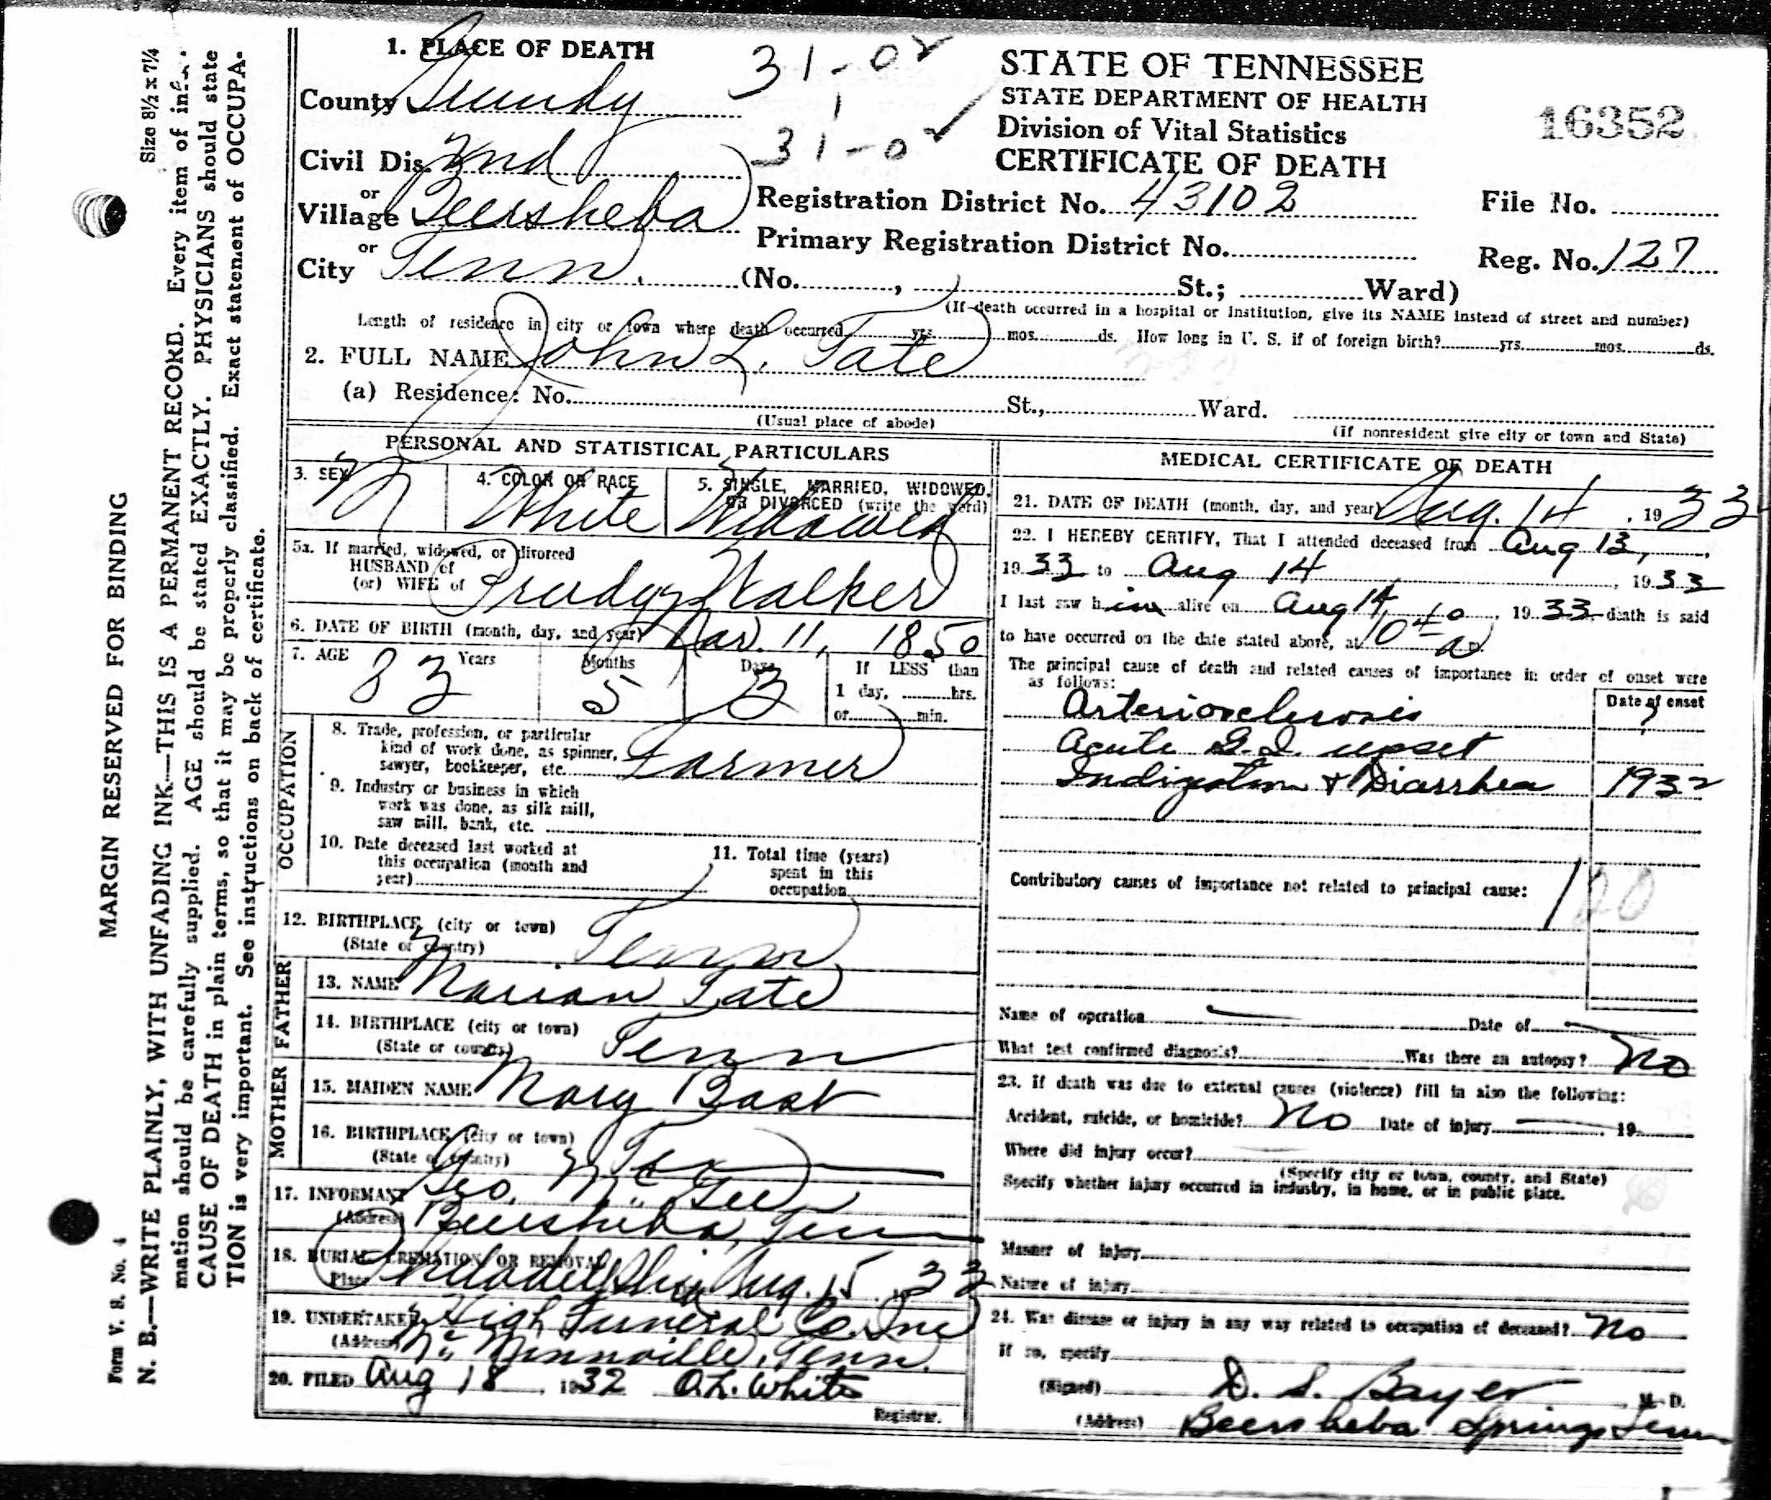 Size 8½ x 7¼
MARGIN RESERVED FOR BINDING
N. B.—WRITE PLAINLY, WITH UNFADING INK.—THIS IS A PERMANENT RECORD. Every item of infor-
mation should be carefully supplied. AGE should be stated EXACTLY. PHYSICIANS should state
CAUSE OF DEATH in plain terms, so that it may be properly classified. Exact statement of OCCUPA-
TION is very important. See instructions on back of certificate.
Form V. S. No. 4
1. PLACE OF DEATH
County Grundy
Civil Dis. 2nd
or
Village Beersheba
or
City Tenn.
31-02
1
31-02
STATE OF TENNESSEE
STATE DEPARTMENT OF HEALTH
Division of Vital Statistics
CERTIFICATE OF DEATH
16352
Registration District No. 43102
File No.
Primary Registration District No.
Reg. No. 127
(No. , St.; Ward)
(If death occurred in a hospital or institution, give its NAME instead of street and number)
Length of residence in city or town where death occurred yrs. mos. ds. How long in U. S. if of foreign birth? yrs. mos. ds.
2. FULL NAME John L. Tate
(a) Residence: No. St., Ward.
(Usual place of abode)
(If nonresident give city or town and State)
PERSONAL AND STATISTICAL PARTICULARS
3. SEX M
4. COLOR OR RACE White
5. SINGLE, MARRIED, WIDOWED, OR DIVORCED (write the word) Widowed
5a. If married, widowed, or divorced
HUSBAND of
(or) WIFE of Prudy Walker
6. DATE OF BIRTH (month, day, and year) Mar. 11, 1850
7. AGE 83 Years 5 Months 3 Days
If LESS than
1 day, hrs.
or min.
OCCUPATION
8. Trade, profession, or particular
kind of work done, as spinner,
sawyer, bookkeeper, etc. Farmer
9. Industry or business in which
work was done, as silk mill,
saw mill, bank, etc.
10. Date deceased last worked at
this occupation (month and
year)
11. Total time (years)
spent in this
occupation
12. BIRTHPLACE (city or town)
(State or country) Tenn
FATHER
13. NAME Marion Tate
14. BIRTHPLACE (city or town)
(State or country) Tenn
MOTHER
15. MAIDEN NAME Mary Bost
16. BIRTHPLACE (city or town)
(State or country)
17. INFORMANT Geo. McGee
(Address) Beersheba, Tenn
18. BURIAL CREMATION OR REMOVAL
Place Philadelphia Aug. 15, 33
19. UNDERTAKER High Funeral Co. Inc
(Address) McMinnville, Tenn.
20. FILED Aug 18, 1932 O.L. White
Registrar.
MEDICAL CERTIFICATE OF DEATH
21. DATE OF DEATH (month, day, and year) Aug. 14, 1933
22. I HEREBY CERTIFY, That I attended deceased from Aug 13,
1933 to Aug 14, 1933
I last saw him alive on Aug 14, 1933 death is said
to have occurred on the date stated above, at 10 40 a.
The principal cause of death and related causes of importance in order of onset were
as follows:
Date of onset
Arteriosclerosis ?
Acute G.I. upset
Indigestion & Diarrhea 1932
Contributory causes of importance not related to principal cause:
120
Name of operation Date of
What test confirmed diagnosis? Was there an autopsy? No
23. If death was due to external causes (violence) fill in also the following:
Accident, suicide, or homicide? No Date of injury , 19
Where did injury occur?
(Specify city or town, county, and State)
Specify whether injury occurred in industry, in home, or in public place.
Manner of injury
Nature of injury
24. Was disease or injury in any way related to occupation of deceased? No
If so, specify
(Signed) D. S. Bayer M. D.
(Address) Beersheba Springs Tenn